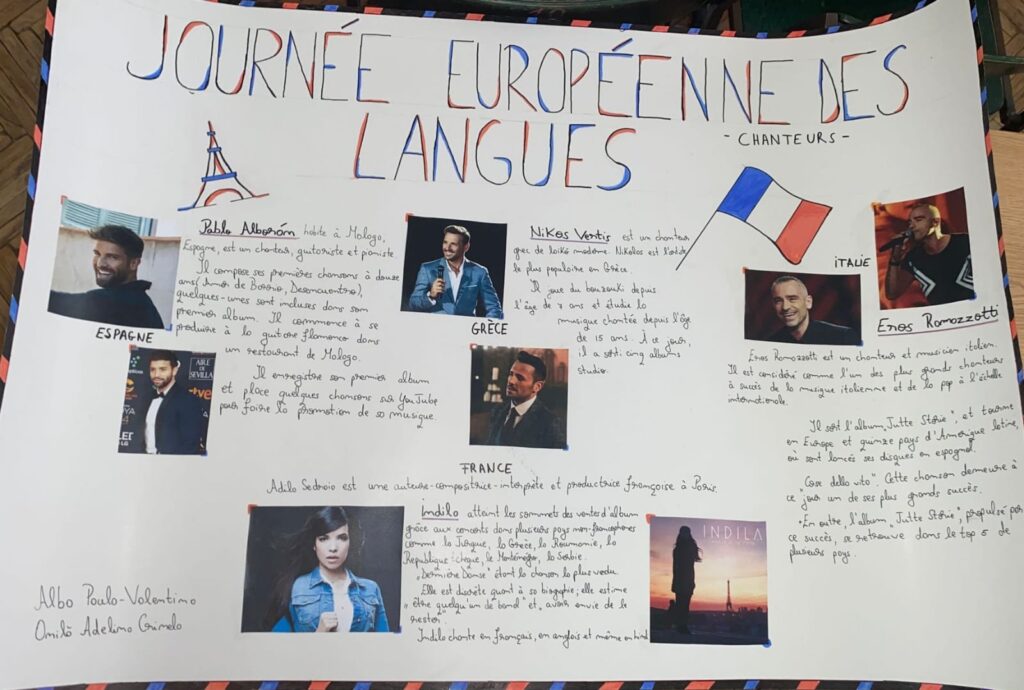 JOURNÉE EUROPÉENNE DES
LANGUES
- CHANTEURS -
Pablo Alborán habite à Malaga,
Espagne, est un chanteur, guitariste et pianiste
Il compose ses premières chansons à douze
ans( Amor de Barrio, Desencuentro),
quelques-unes sont incluses dans son
premier album. Il commence à se
produire à la guitare flamenco dans
un restaurant de Malaga.
Il enregistre son premier album
et place quelques chansons sur YouTube
pour faire la promotion de sa musique.
ESPAGNE
AIRE DE
SEVILLA
GRÈCE
Nikos Vertis est un chanteur
grec de laïkó moderne. Nikolas est l'artiste
le plus populaire en Grèce.
Il joue du bouzouki depuis
l'âge de 7 ans et étudie la
musique chantée depuis l'âge
de 15 ans. À ce jour,
il a sorti cinq albums
studio.
ITALIE
Eros Ramazzotti
Eros Ramazzotti est un chanteur et musicien italien.
Il est considéré comme l'un des plus grands chanteurs
à succès de la musique italienne et de la pop à l'échelle
internationale.
Il sort l'album „Tutte Storie", et tourne
en Europe et quinze pays d'Amérique latine,
où sont lancés ses disques en espagnol.
"Cose della vita". Cette chanson demeure à
ce jour un de ses plus grands succès.
En outre, l'album „Tutte Storie", propulsé par
ce succès, se retrouve dans le top 5 de
plusieurs pays.
FRANCE
Adila Sedraïa est une auteure-compositrice-interprète et productrice française à Paris.
Indila atteint les sommets des ventes d'album
grâce aux concerts dans plusieurs pays non-francophones
comme la Turquie, la Grèce, la Roumanie, la
République tchèque, le Monténégro, la Serbie.
„Dernière Danse" étant la chanson la plus vendu
Elle est discrète quant à sa biographie; elle estime
„être quelqu'un de banal" et „avoir envie de le
rester".
Indila chante en français, en anglais et même en hindi
INDILA
Alba Paula-Valentina
Omilă Adelina Crinela